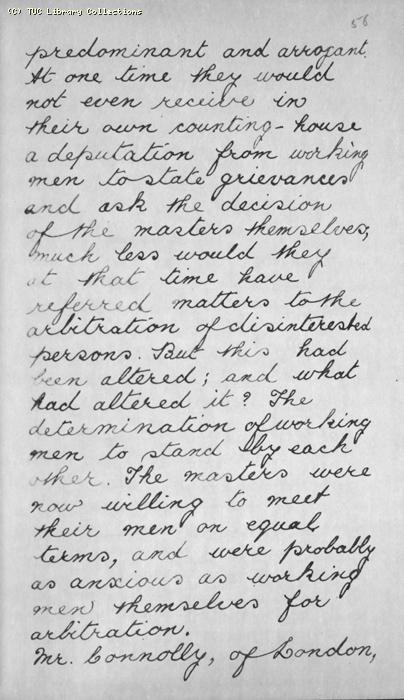 (C) TUC Library Collections
58
predominant and arrogant.
At one time they would
not even receive in
their own counting-house
a deputation from working
men to state grievances
and ask the decision
of the masters themselves;
much less would they
at that time have
referred matters to the
arbitration of disinterested
persons. But this had
been altered; and what
had altered it? The
determination of working
men to stand by each
other. The masters were
now willing to meet
their men on equal
terms, and were probably
as anxious as working
men themselves for
arbitration.
Mr. Connolly, of London,